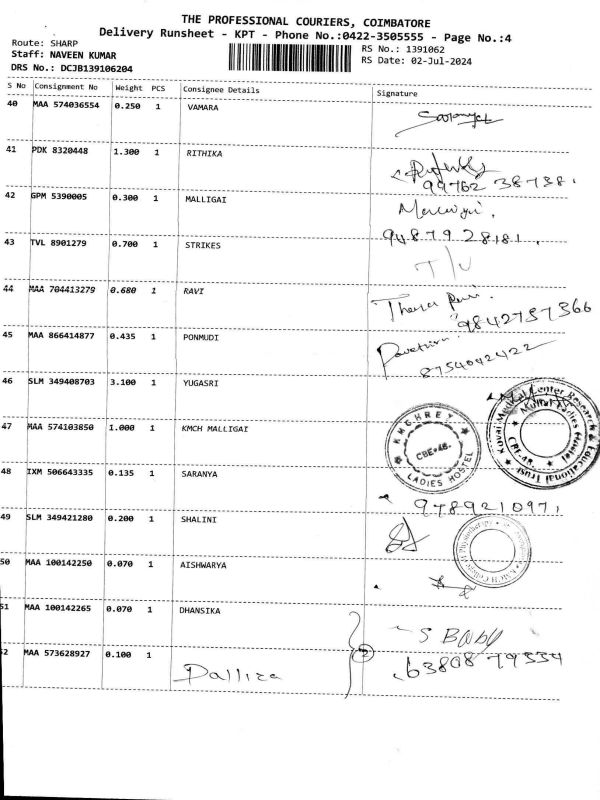 THE PROFESSIONAL COURIERS, COIMBATORE
Delivery Runsheet - KPT - Phone No.:0422-3505555 - Page No.:4
Route: SHARP
Staff: NAVEEN KUMAR
DRS No.: DCJB139106204
RS No.: 1391062
RS Date: 02-Jul-2024
S No Consignment No Weight PCS Consignee Details Signature
40 MAA 574036554 0.250 1 VAMARA
41 PDK 8320448 1.300 1 RITHIKA
99762 38738.
42 GPM 5390005 0.300 1 MALLIGAI
94879 28181.
43 TVL 8901279 0.700 1 STRIKES
T/V
44 MAA 704413279 0.680 1 RAVI
9842757366
45 MAA 866414877 0.435 1 PONMUDI
8754042422
46 SLM 349408703 3.100 1 YUGASRI
Kovai Medical Center Research & Educational Trust
47 MAA 574103850 1.000 1 KMCH MALLIGAI
CBE-48.
LADIES HOSTEL
48 IXM 506643335 0.135 1 SARANYA
9789210971
49 SLM 349421280 0.200 1 SHALINI
KMCH College of Physiotherapy
50 MAA 100142250 0.070 1 AISHWARYA
51 MAA 100142265 0.070 1 DHANSIKA
S Baby
52 MAA 573628927 0.100 1 Dalliza
2
63808 79334